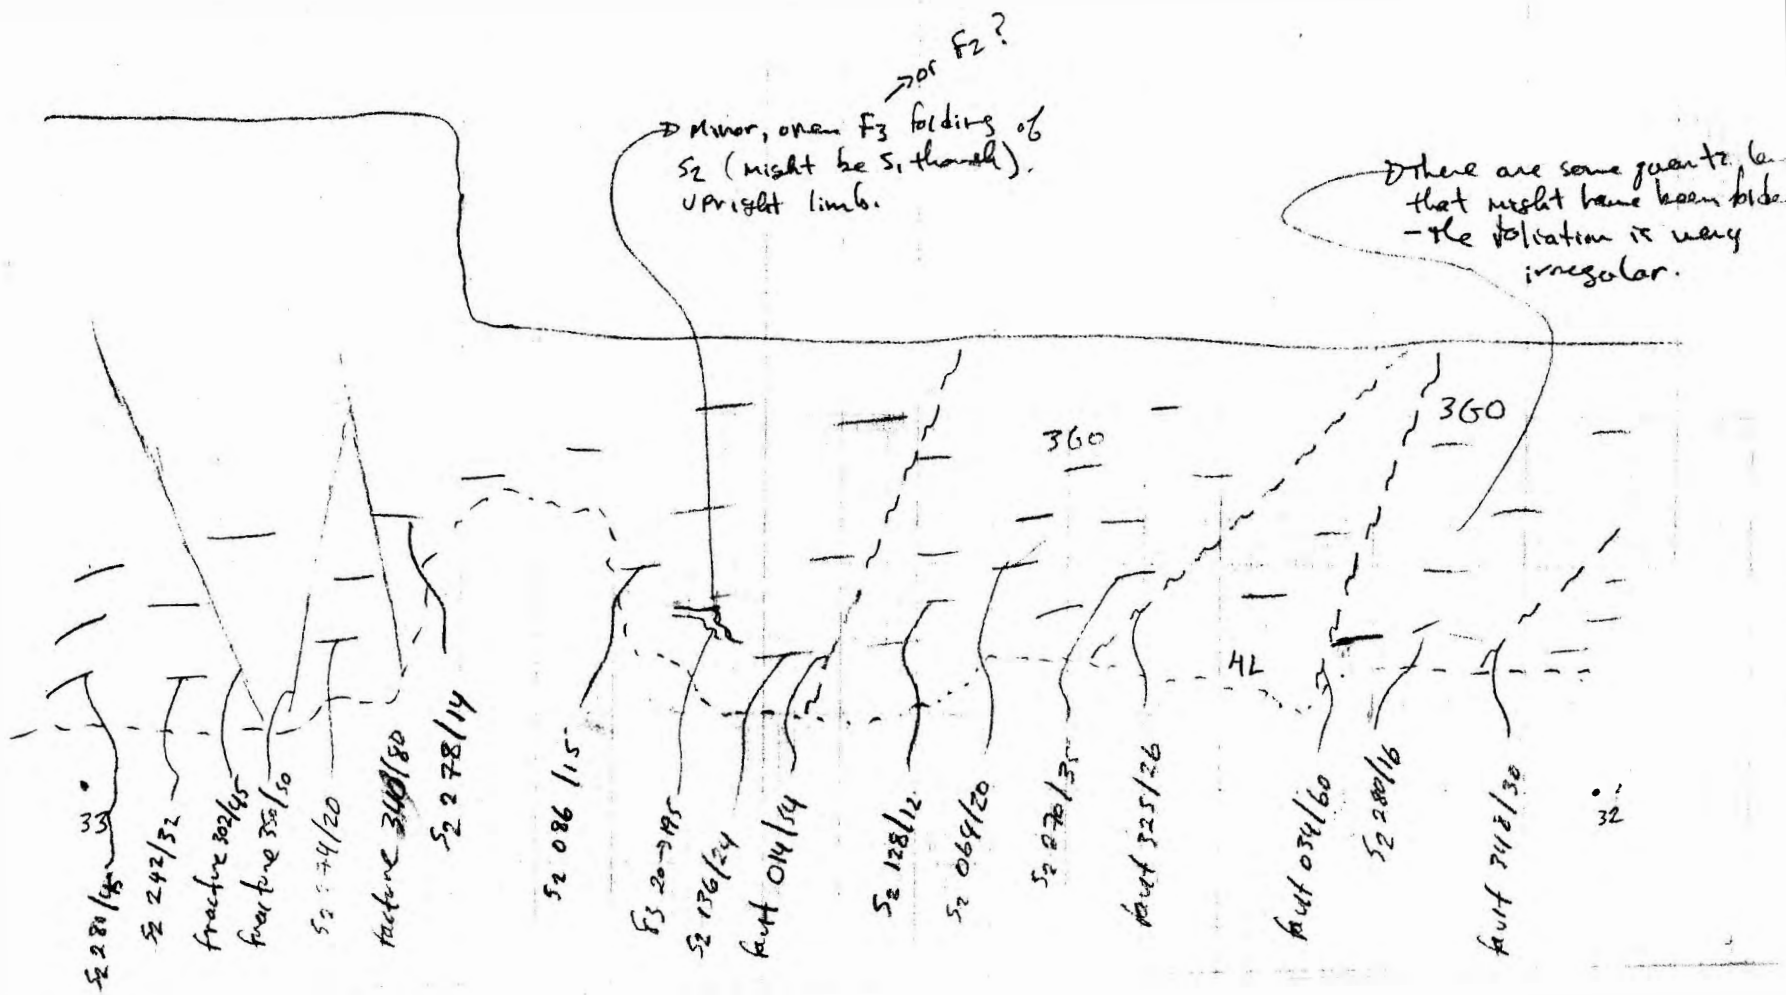 →or F2?
Minor, open F3 folding of
S2 (might be S1 though).
upright limb.
There are some quartz
that might have been folde
- the foliation is very
irregular.
3GO
3GO
4L
33
32
S2 280/
S2 242/32
fracture 302/45
fracture 350/50
S2 274/20
fracture /80
S2 278/14
S2 086/15
F3 20→195
S2 136/24
fault 014/54
S2 128/12
S2 064/20
S2 270/35
fault 325/26
fault 034/60
S2 280/16
fault 348/30